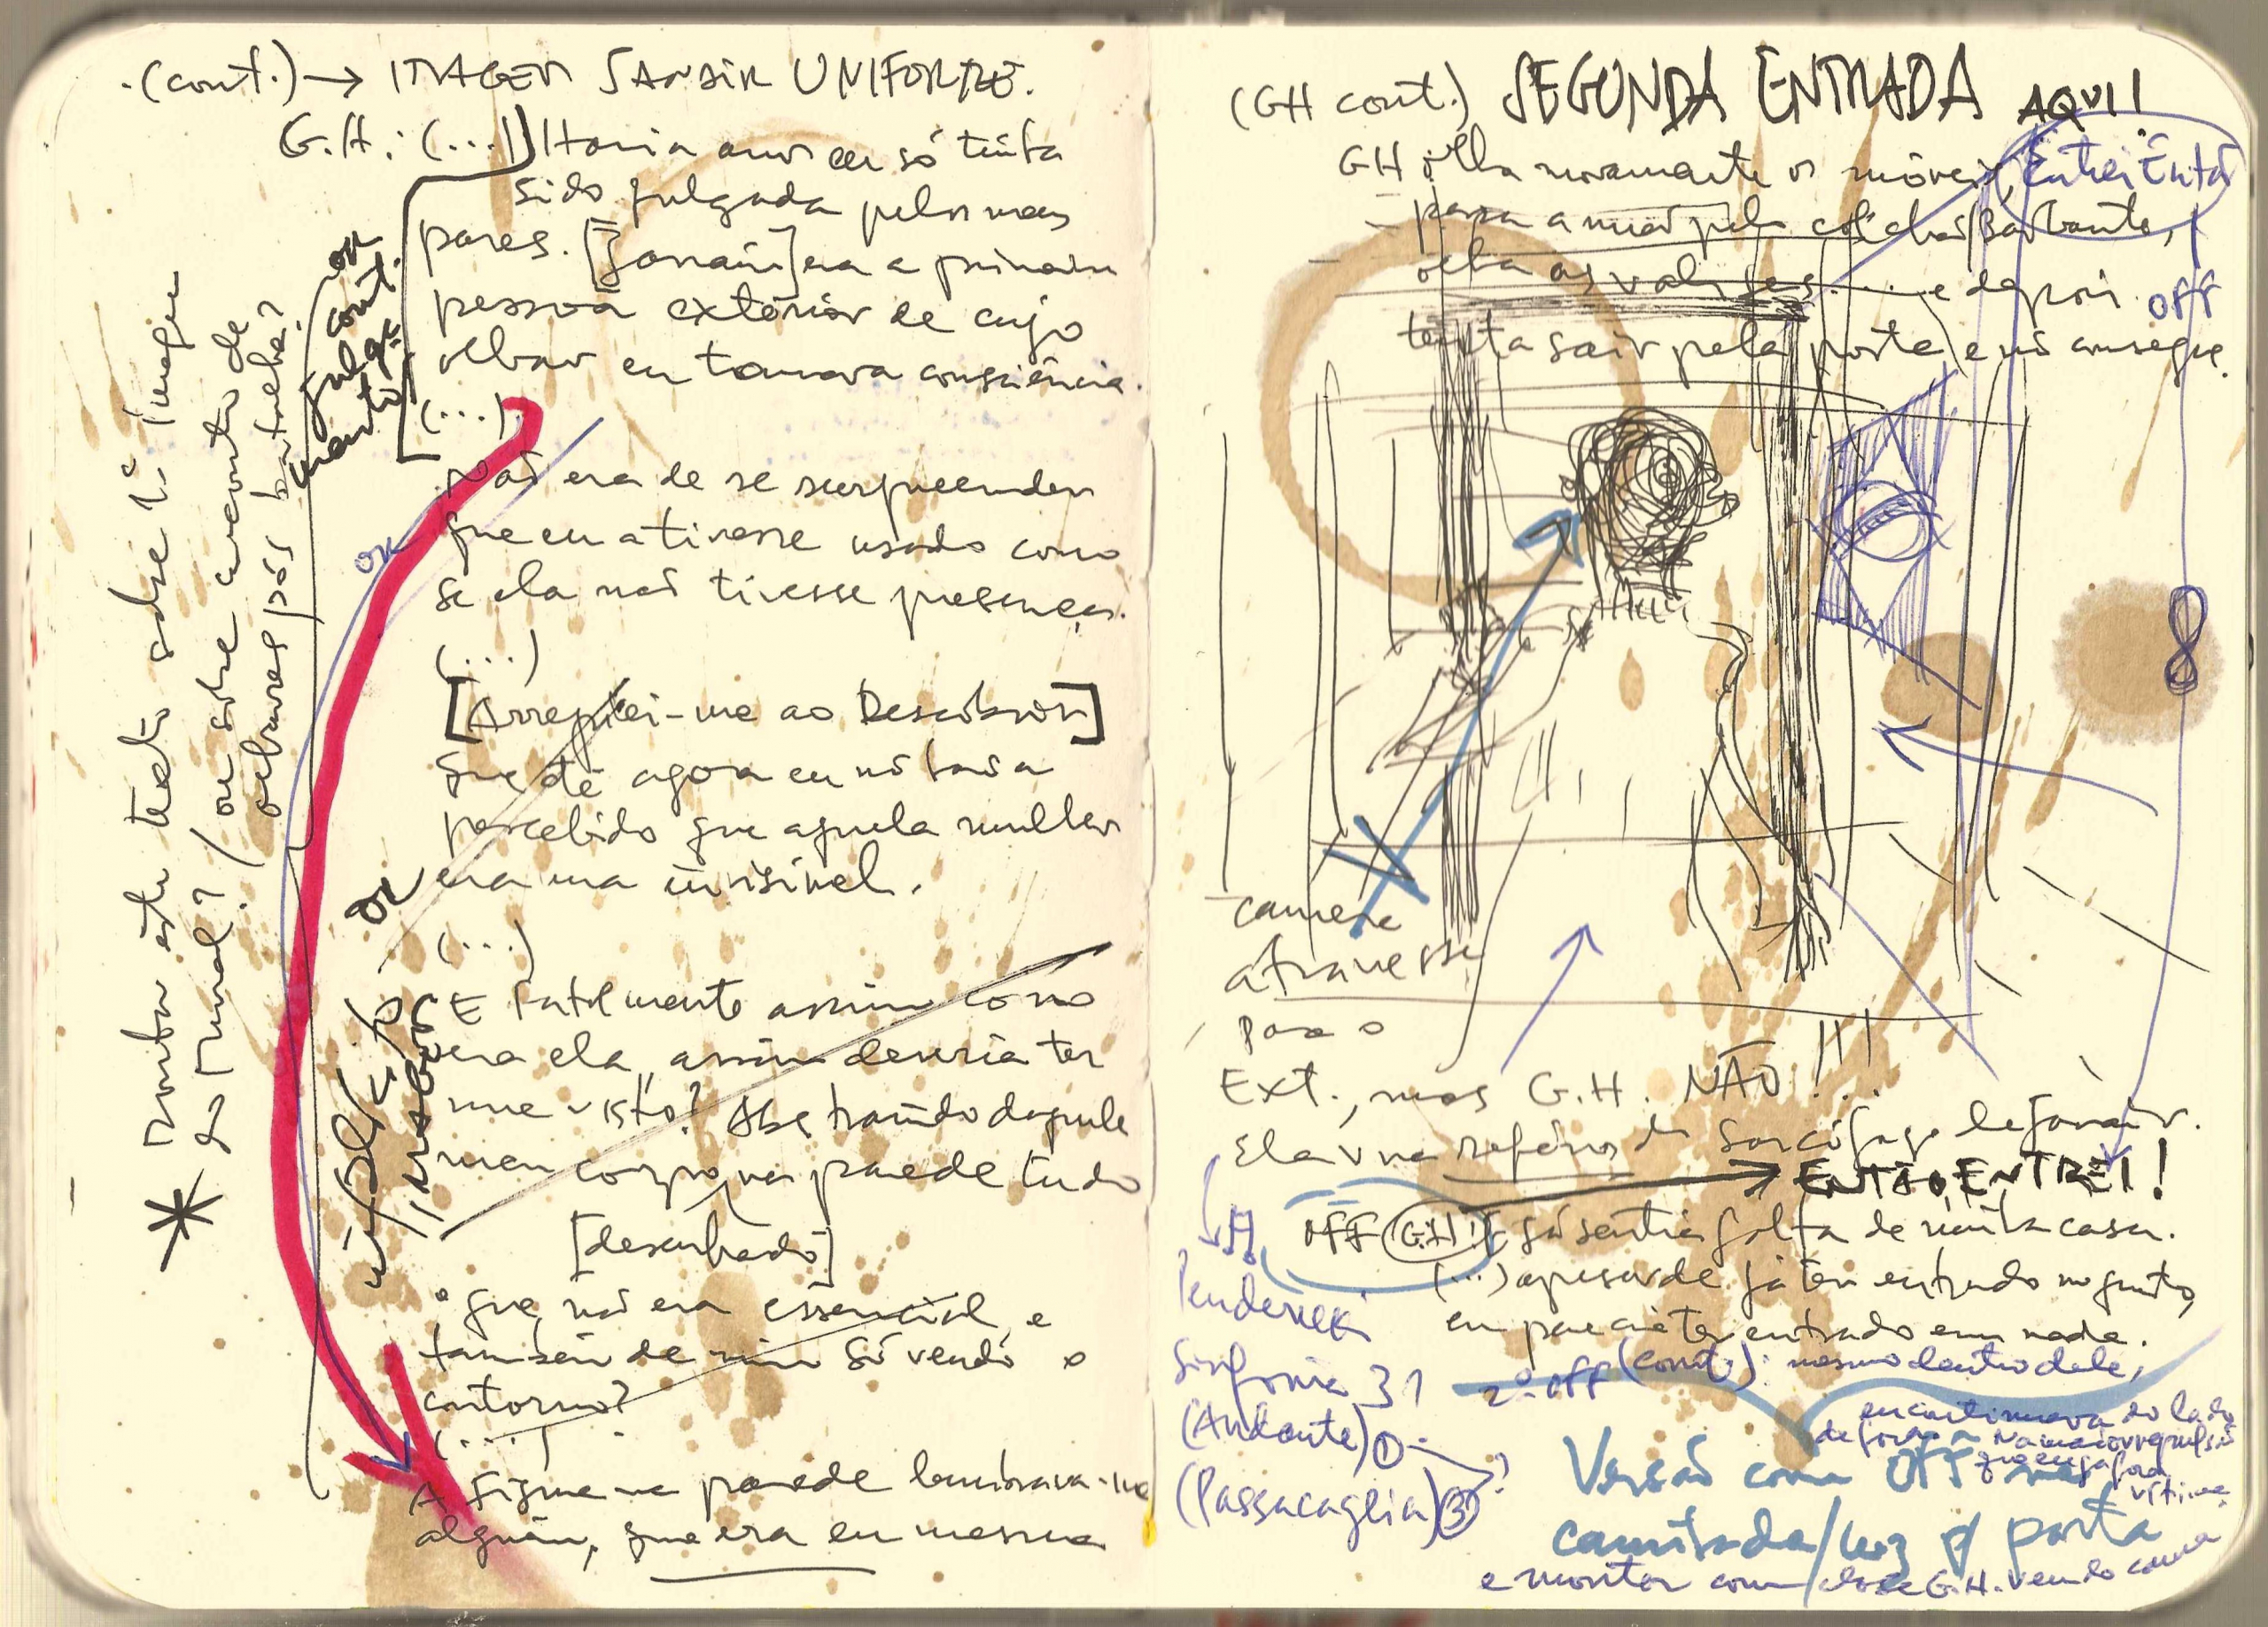 .(cont.) → IMAGEM JANAIR UNIFORME.
G.H.: (...) Havia anos eu só tinha
sido julgada pelos meus
pares. [Janair] era a primeira
pessoa exterior de cujo
olhar eu tomava consciência.
(...)
Não era de se surpreender
que eu a tivesse usado como
se ela não tivesse presença.
(...)
[Arrepiei-me ao Descobrir]
que até agora eu não havia
percebido que aquela mulher
era uma invisível.
(...)
E fatalmente assim como
era ela, assim deveria ter
me visto? Abstraindo daquele
meu corpo na parede tudo
[desenhado]
o que não era essencial, e
também de mim só vendo o
contorno?
(....)
A figura na parede lembrava-me
alguém, que era eu mesma
ou
cont.
julga
mento
ou
ou
* Montar este texto sobre a imagem
do mural? / ou sobre encontro de
olhares pós barulho?
(GH cont.) SEGUNDA ENTRADA AQUI!
GH olha novamente os móveis, Entrei Então
passa a mão pelo colchão/barbante,
olha as valises.... e depois off
tenta sair pela porta e não consegue.
camera
atravessa
para o
Ext., mas G.H. NÃO!!!
Ela vira refém do sarcófago de Janair.
→ ENTÃO, ENTREI!
OFF (G.H.): já sentia falta de minha casa.
(...) apesar de já ter entrado no quarto,
eu parecia ter entrado em nada.
2º off (cont.): mesmo dentro dele,
eu continuava do lado
de fora
vítima
Penderecki
Sinfonia 3?
(Andante) ①
(Passacaglia) ③ ?
Versão com OFF na
caminhada/luz p/ porta
e montar com close G.H. vendo cama